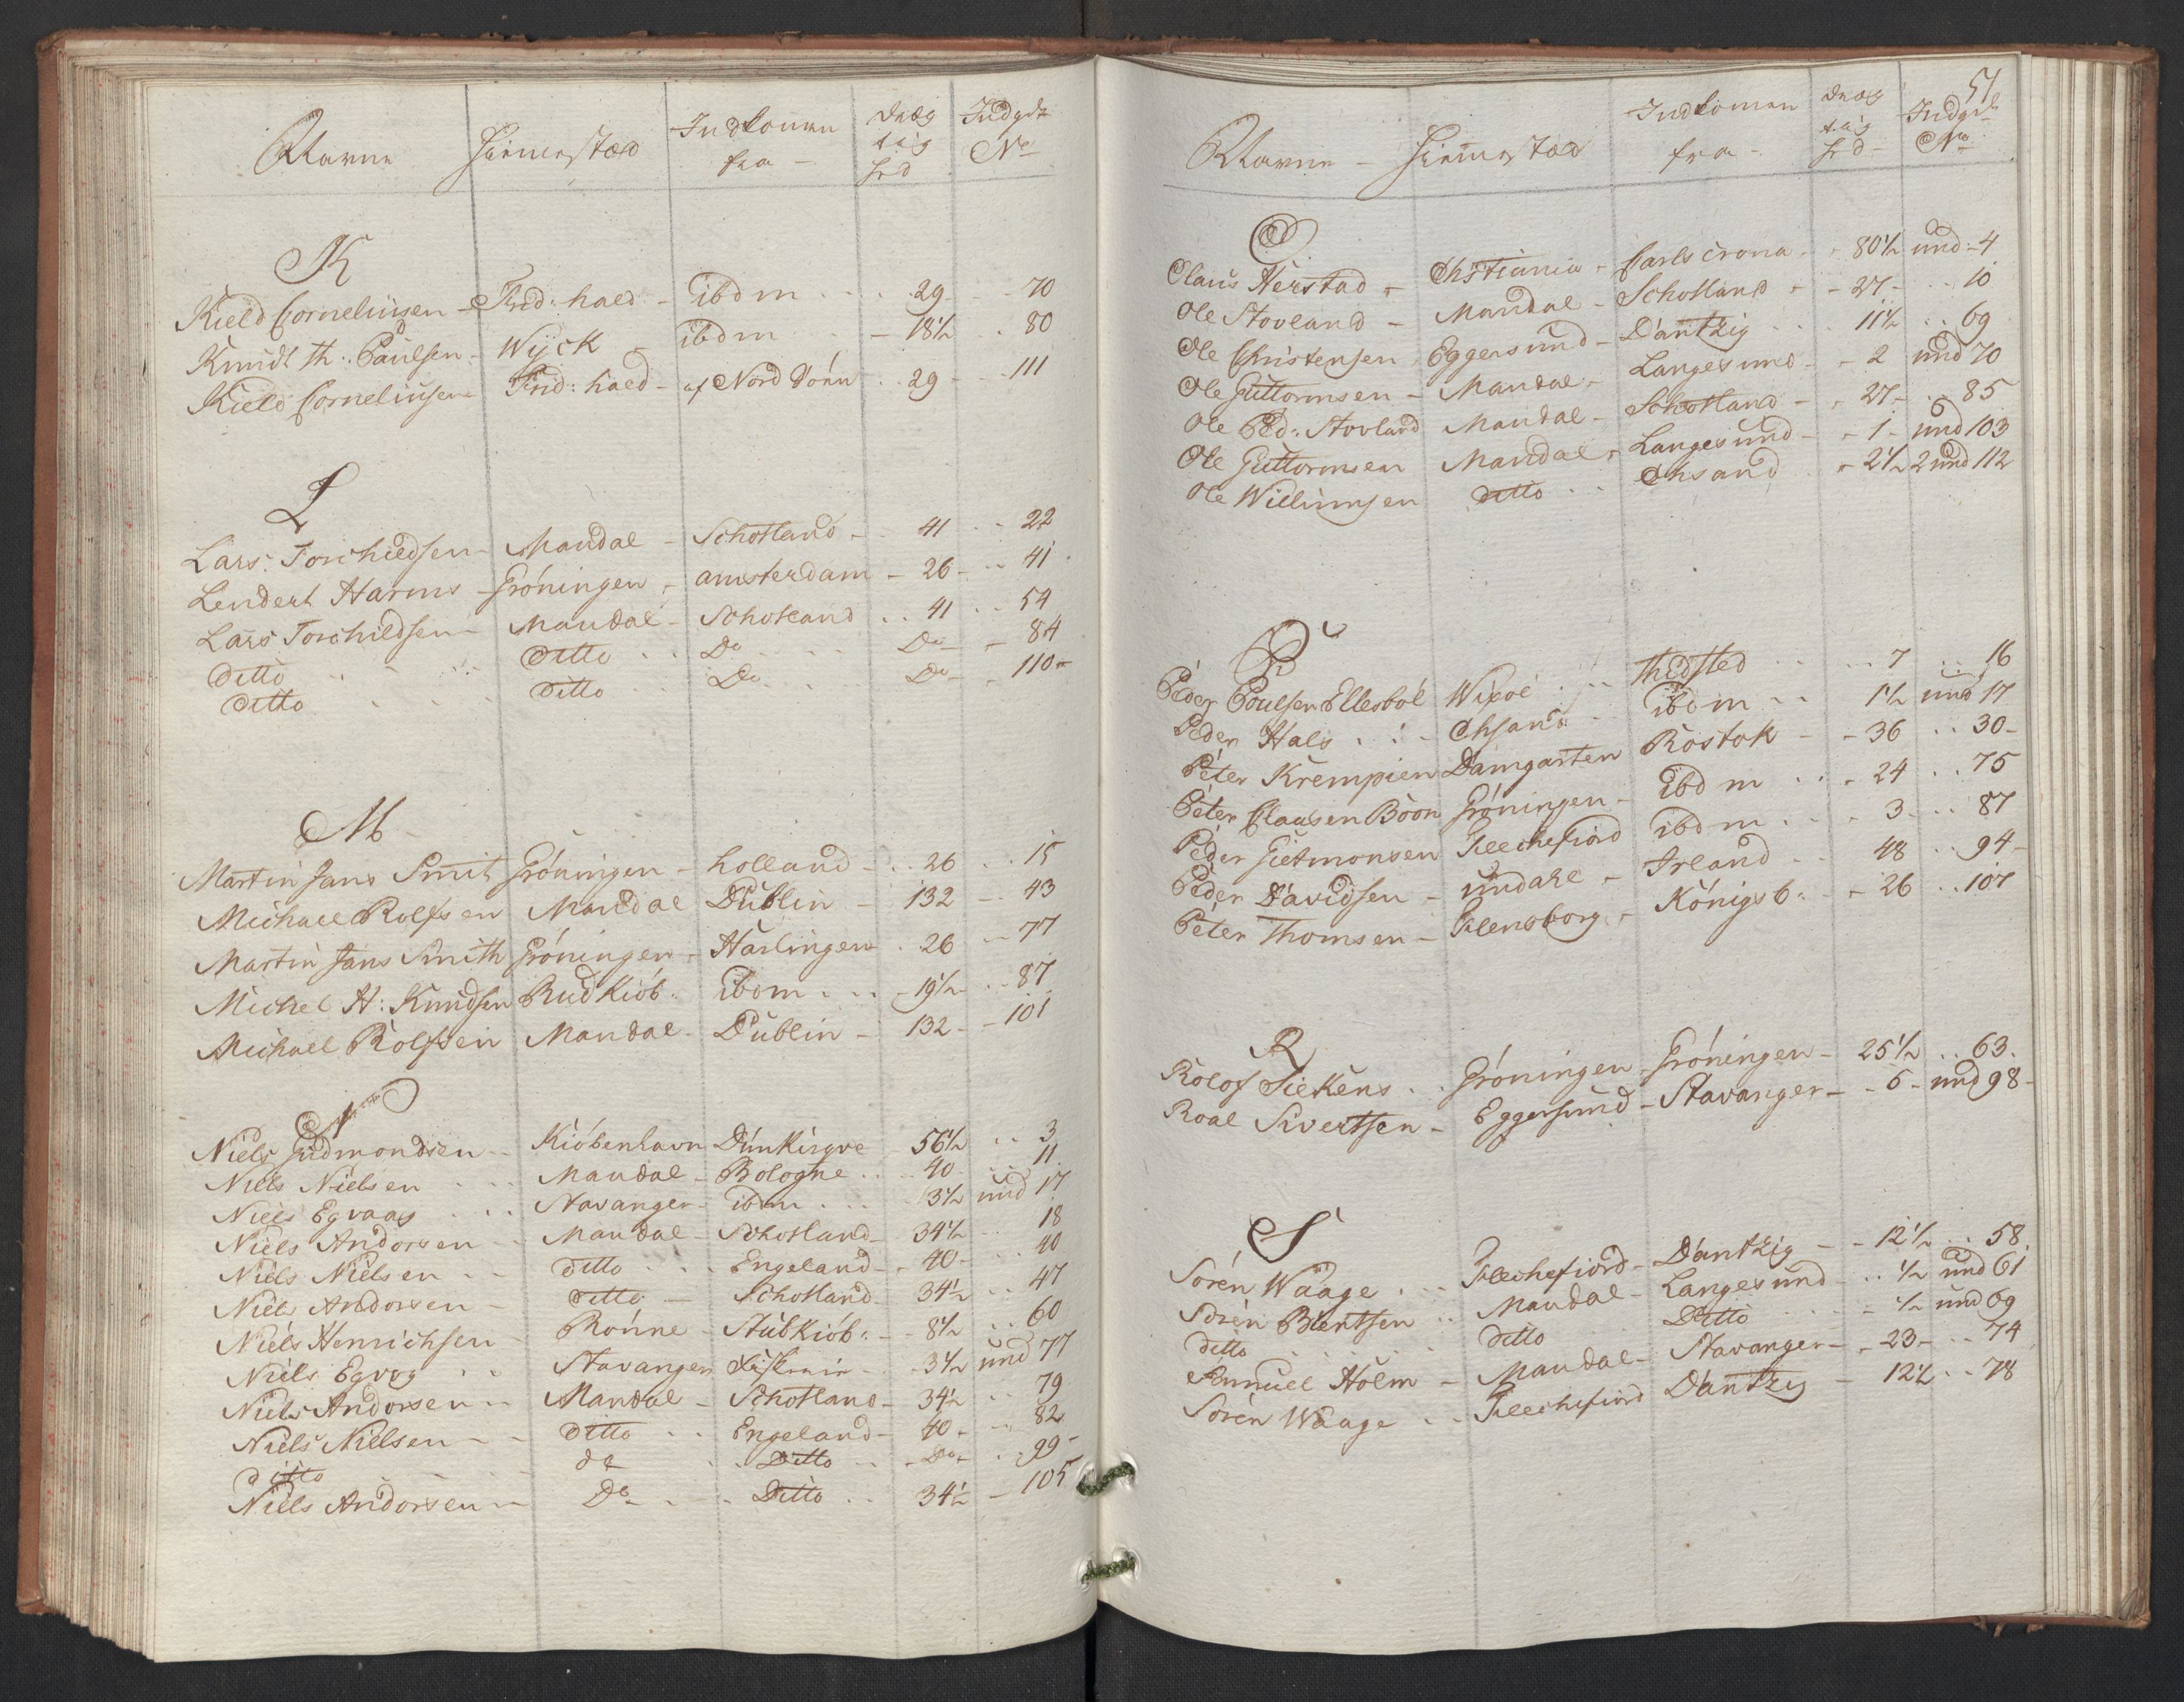 Navne Hiemstæd Indkommen fra – Dræg tig hed Indgde No
K
Kield Corneliusen – Frid: hald – ibdm 29 – 70
Knudt Th: Paulsen – Wyck – ibdm – 18½ 80
Kield Corneliusen Frid: hald – af Nord Søen 29 – 111
L
Lars Torchildsen – Mandal – Schotland – 41 22
Lendert Harms – Gröningen – amsterdam – 26 – 41
Lars Torchildsen – Mandal – Schotland 41 54
Ditto Ditto Do Do – 84
Ditto Ditto Do Do – 110 –
M
Martin Jans Smit Gröningen – holland – 26 15
Michael Rolfsen Mandal Dublin – 132 – 43
Martin Jans Smith Gröningen – Harlingen 26 – 77
Michel H: Knudsen Rudkiöb: ibdm 19½ 87
Michael Rolfsen Mandal – Dublin – 132 – 101
N
Niels Gudmondsen – Kiöbenhavn Dünkirqve 56½ 3
Niels Nielsen Mandal – Bologne 40 11
Niels Egvaag Stavanger – ibdm 3½ und 17
Niels Andorsen Mandal – Schotland – 34½ 18
Niels Nielsen Ditto Engeland – 40 – 40
Niels Andorsen – Ditto – Schotland – 34½ 47
Niels Henrichsen Rönne – Stubkiöb: – 8½ 60
Niels Egvog Stavanger 3½ und 77
Niels Andorsen Mandal – Schotland – 34½ 79
Niels Nielsen – Ditto Engeland – 40 – 82
Ditto do Ditto – Do – 99 –
Niels Andorsen – Do Ditto 34½ – 105
51
Navne – Hiemstæd Indkomen fra – Dræg tig hed – Indgde No
O
Olaus Herstad – Chstiania – Carlscrona – 80½ und – 4
Ole Stovland – Mandal – Schotland – 27 – 10
Ole Christensen Eggersund – Dantzig 11½ 69
Ole Guttormsen – Mandal – Langesund – 2 und 70
Ole Ped: Stovland Mandal – Schotland – 27 – 85
Ole Guttormsen Mandal – Langesund – 1 – und 103
Ole Willumsen Ditto Chsand – 2½ 2 und 112
P
Peder Poulsen Ellesböl Wixöe Thedsted 7 16
Peder Hals – Chsand – ibdm 1½ und 17
Peter Krempien Damgarten Rostok – 36 30 –
Peter Clausen Boon Gröningen – ibdm – 24 75
Peder Gietmonsen Flechefiord ibdm – 3 – 87
Peder Davidsen – Undahl – Irland 48 94 –
Peter Thomsen – Flensborg – Königsb: – 26 107
R
Rolof Siekens Gröningen – Gröningen – 25½ 63.
Roal Sivertsen – Eggersund – Stavanger – 6 – und 98 –
S
Sören Waage Flechefiord – Dantzig – 12½ 58.
Sören Bentsen Mandal – Langesund ½ und 61
Ditto Ditto Ditto – ½ und 69
Samuel Holm – Mandal – Stavanger – 23 – 74
Sören Waage Flechefiord Dantzig – 12½ 78